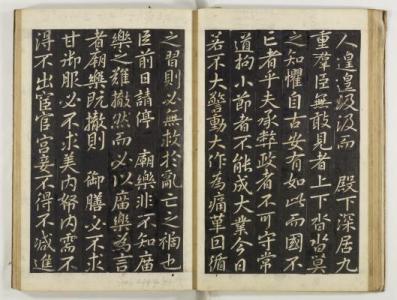 人遑遑汲汲而 殿下深居九
重羣臣無敢見者上下沓沓莫
之知懼自古安有如此而國不
亡者乎夫承弊政者不可守常
道拘小節者不能成大業今日
若不大警動大作為痛革因循
之習則必無救於亂亡之禍也
臣前日請停 廟樂非不知廟
樂之難撤然而必以廟樂為言
者廟樂既撤則 御膳必不求
甘御服必不求美內帑內需不
得不出宦官宮妾不得不減進